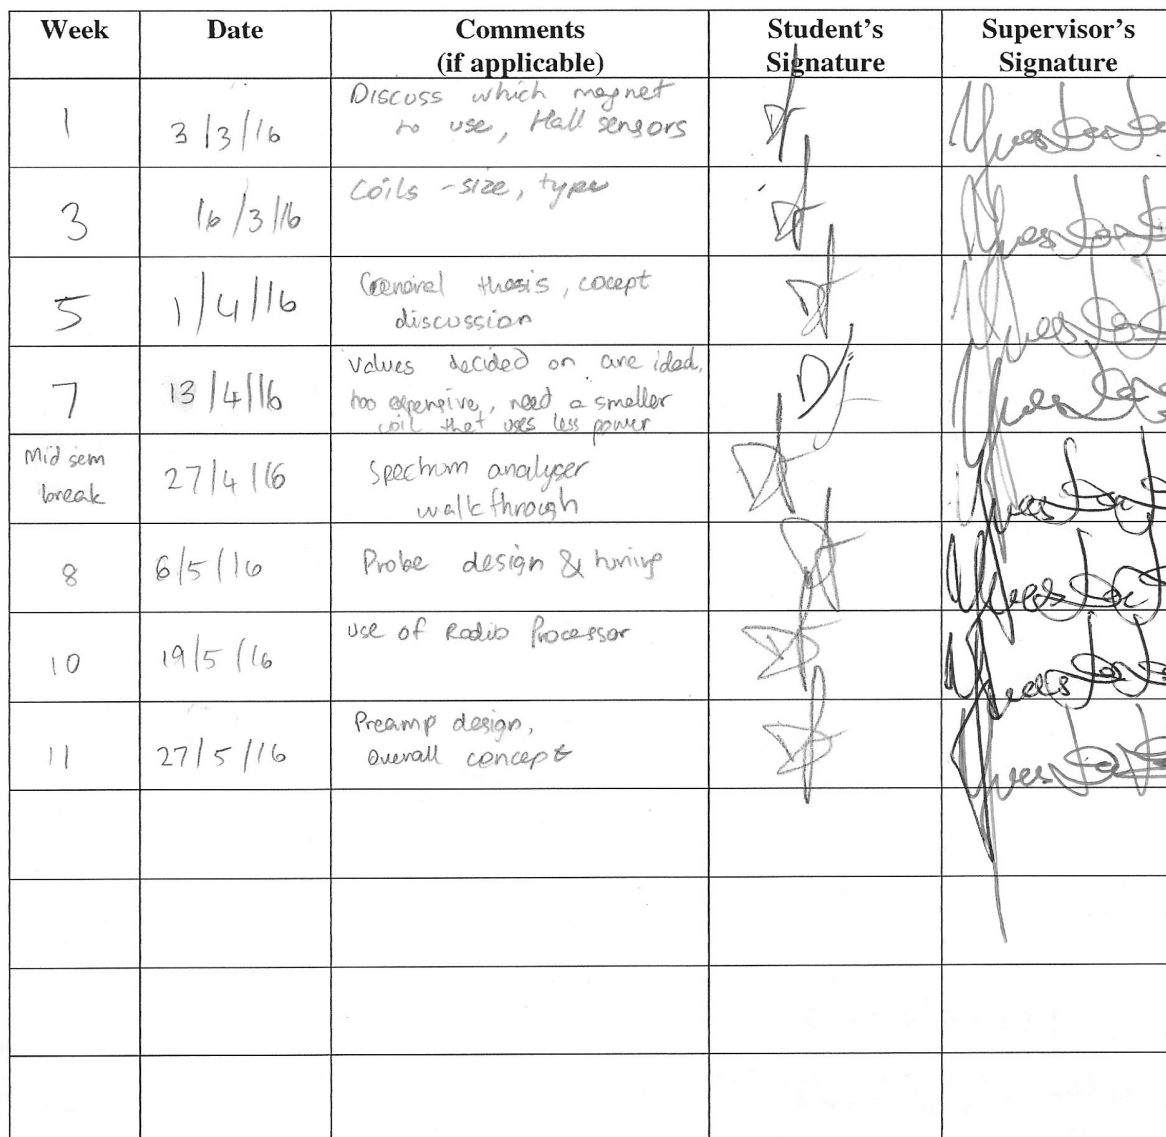 Week Date Comments (if applicable) Student's Signature Supervisor's Signature
1 3/3/16 Discuss which magnet
to use, Hall sensors
3 16/3/16 Coils - size, type
5 1/4/16 General thesis, cocept
discussion
7 13/4/16 Values decided on are ideal,
too expensive, need a smaller
coil that uses less power
Mid sem
break 27/4/16 Spectrum analyser
walkthrough
8 6/5/16 Probe design & tuning
10 19/5/16 use of Radio Processor
11 27/5/16 Preamp design,
Overall concept